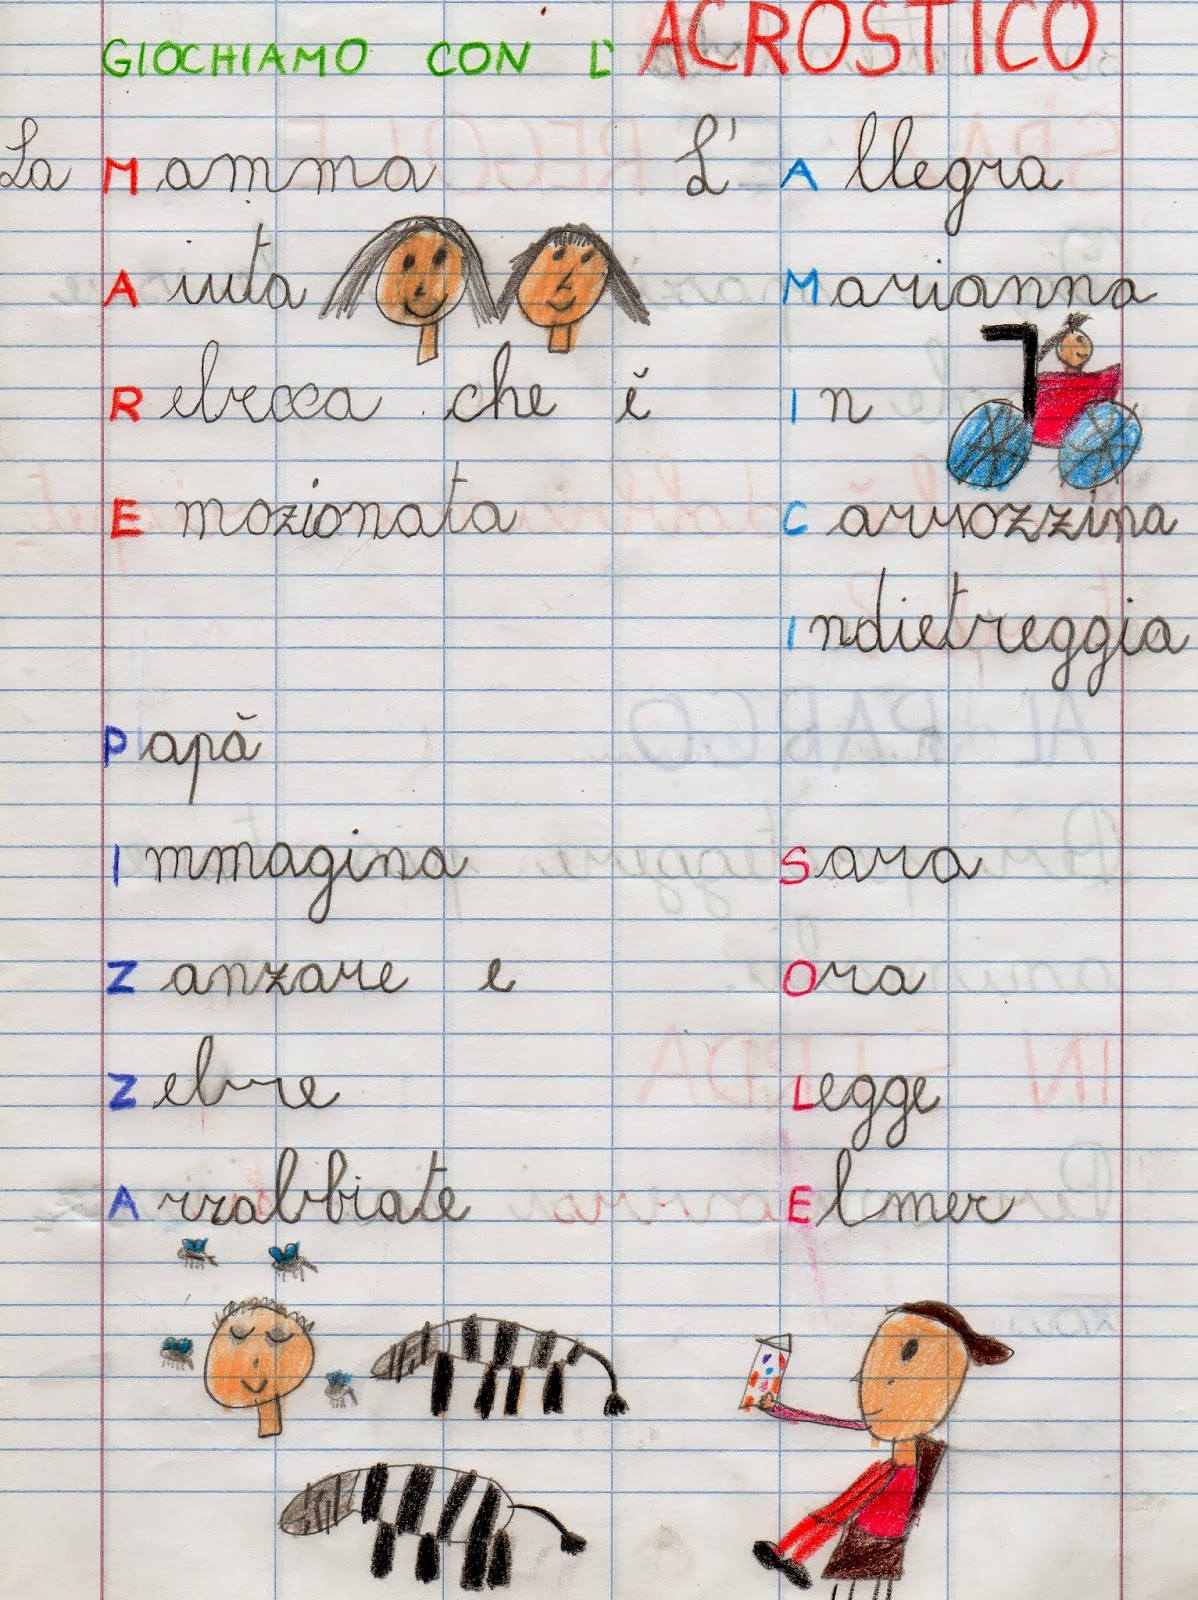 GIOCHIAMO CON L' ACROSTICO
La Mamma
Aiuta
Rebecca che è
Emozionata
L' Allegra
Marianna
In
Carrozzina
Indietreggia
Papà
Immagina
Zanzare e
Zebre
Arrabbiate
Sara
Ora
Legge
Elmer